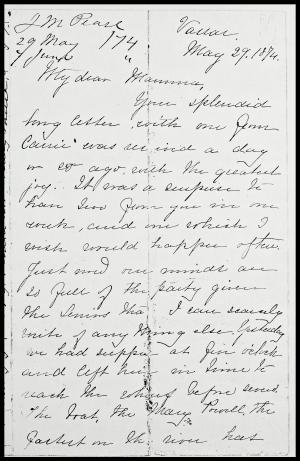 J M Pease
29 May /74
7 June "
Vassar.
May 29. 1874.
My dear Mamma,
Your splendid
long letter, with one from
Carrie was received a day
or so ago with the greatest
joy. It was a surprise to
have two from you in one
week, and one which I
wish would happen often.
Just now our minds are
so full of the party given
the Seniors that I can scarcely
write of any thing else. Yesterday
we had supper at five o'clock
and left here in time to
reach the before seven.
The boat, the Mary Powell, the
fastest on the river has